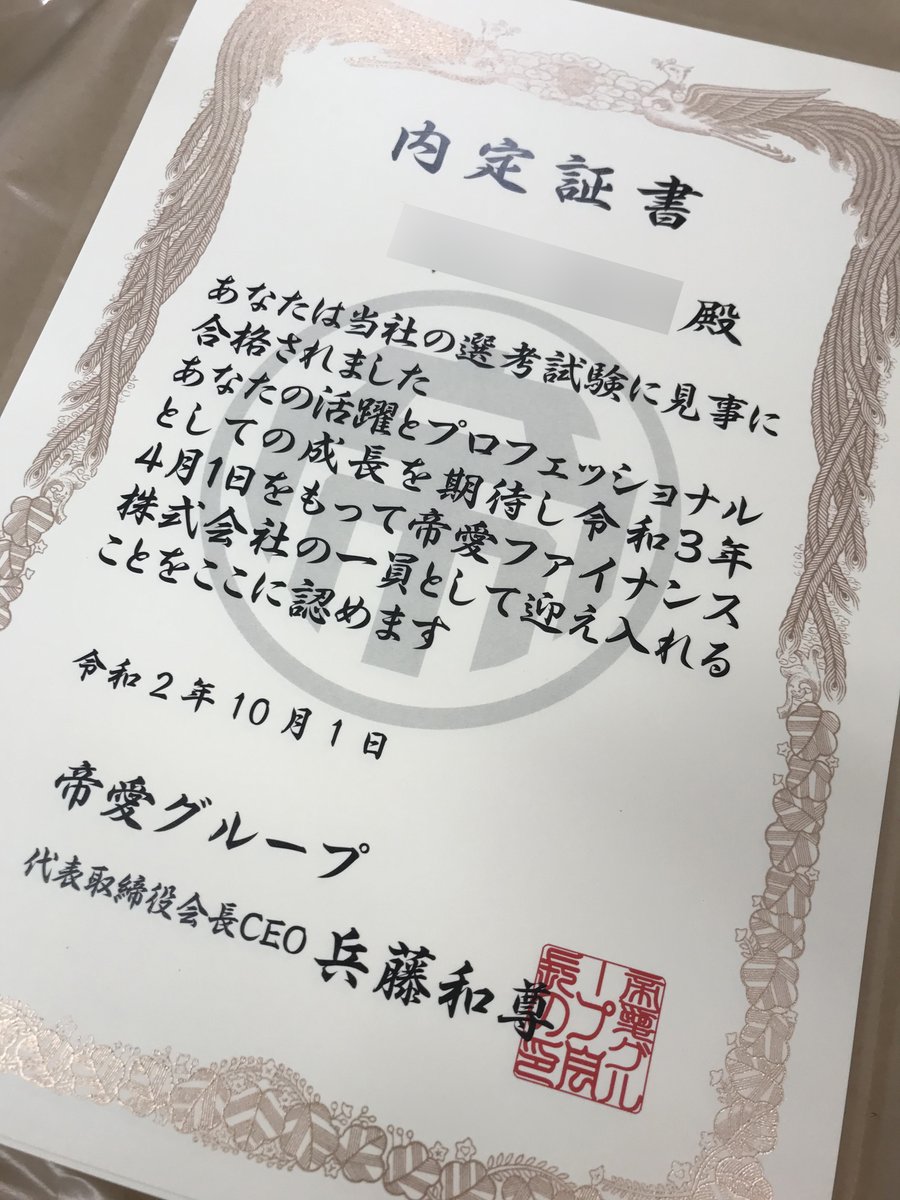 内定証書
殿
あなたは当社の選考試験に見事に
合格されました
あなたの活躍とプロフェッショナル
としての成長を期待し令和3年
4月1日をもって帝愛ファイナンス
株式会社の一員として迎え入れる
ことをここに認めます
令和2年10月1日
帝愛グループ
代表取締役会長CEO 兵藤和尊
帝愛グル
ープ会
長の印